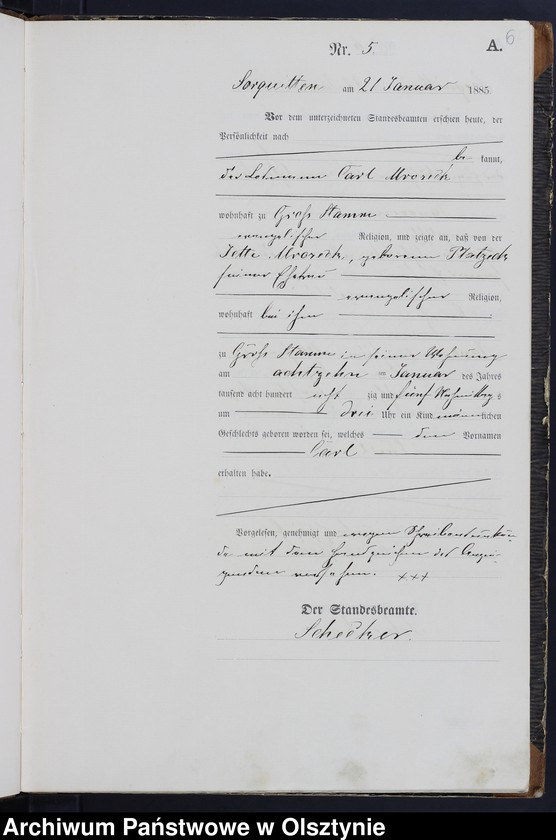 6
Nr. 5. A.
Sorquitten am 21 Januar 1885.
Vor dem unterzeichneten Standesbeamten erschien heute, der
Persönlichkeit nach
be kannt,
Carl Mroseck
wohnhaft zu Groß Stamm
evangelischer Religion, und zeigte an, daß von der
Jette Mroseck, geborenen
seiner Ehefrau
evangelischer Religion,
wohnhaft bei ihm
zu Groß Stamm in seiner Wohnung
am achtzehn ten Januar des Jahres
tausend acht hundert acht zig und fünf Nachmittags
um drei Uhr ein Kind männlichen
Geschlechts geboren worden sei, welches den Vornamen
Carl
erhalten habe.
Vorgelesen, genehmigt und wegen Schreibensunkun-
de mit dem Handzeichen des Anzei-
genden versehen. +++
Der Standesbeamte.
Archiwum Państwowe w Olsztynie